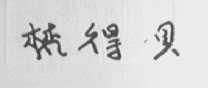 梳得贝